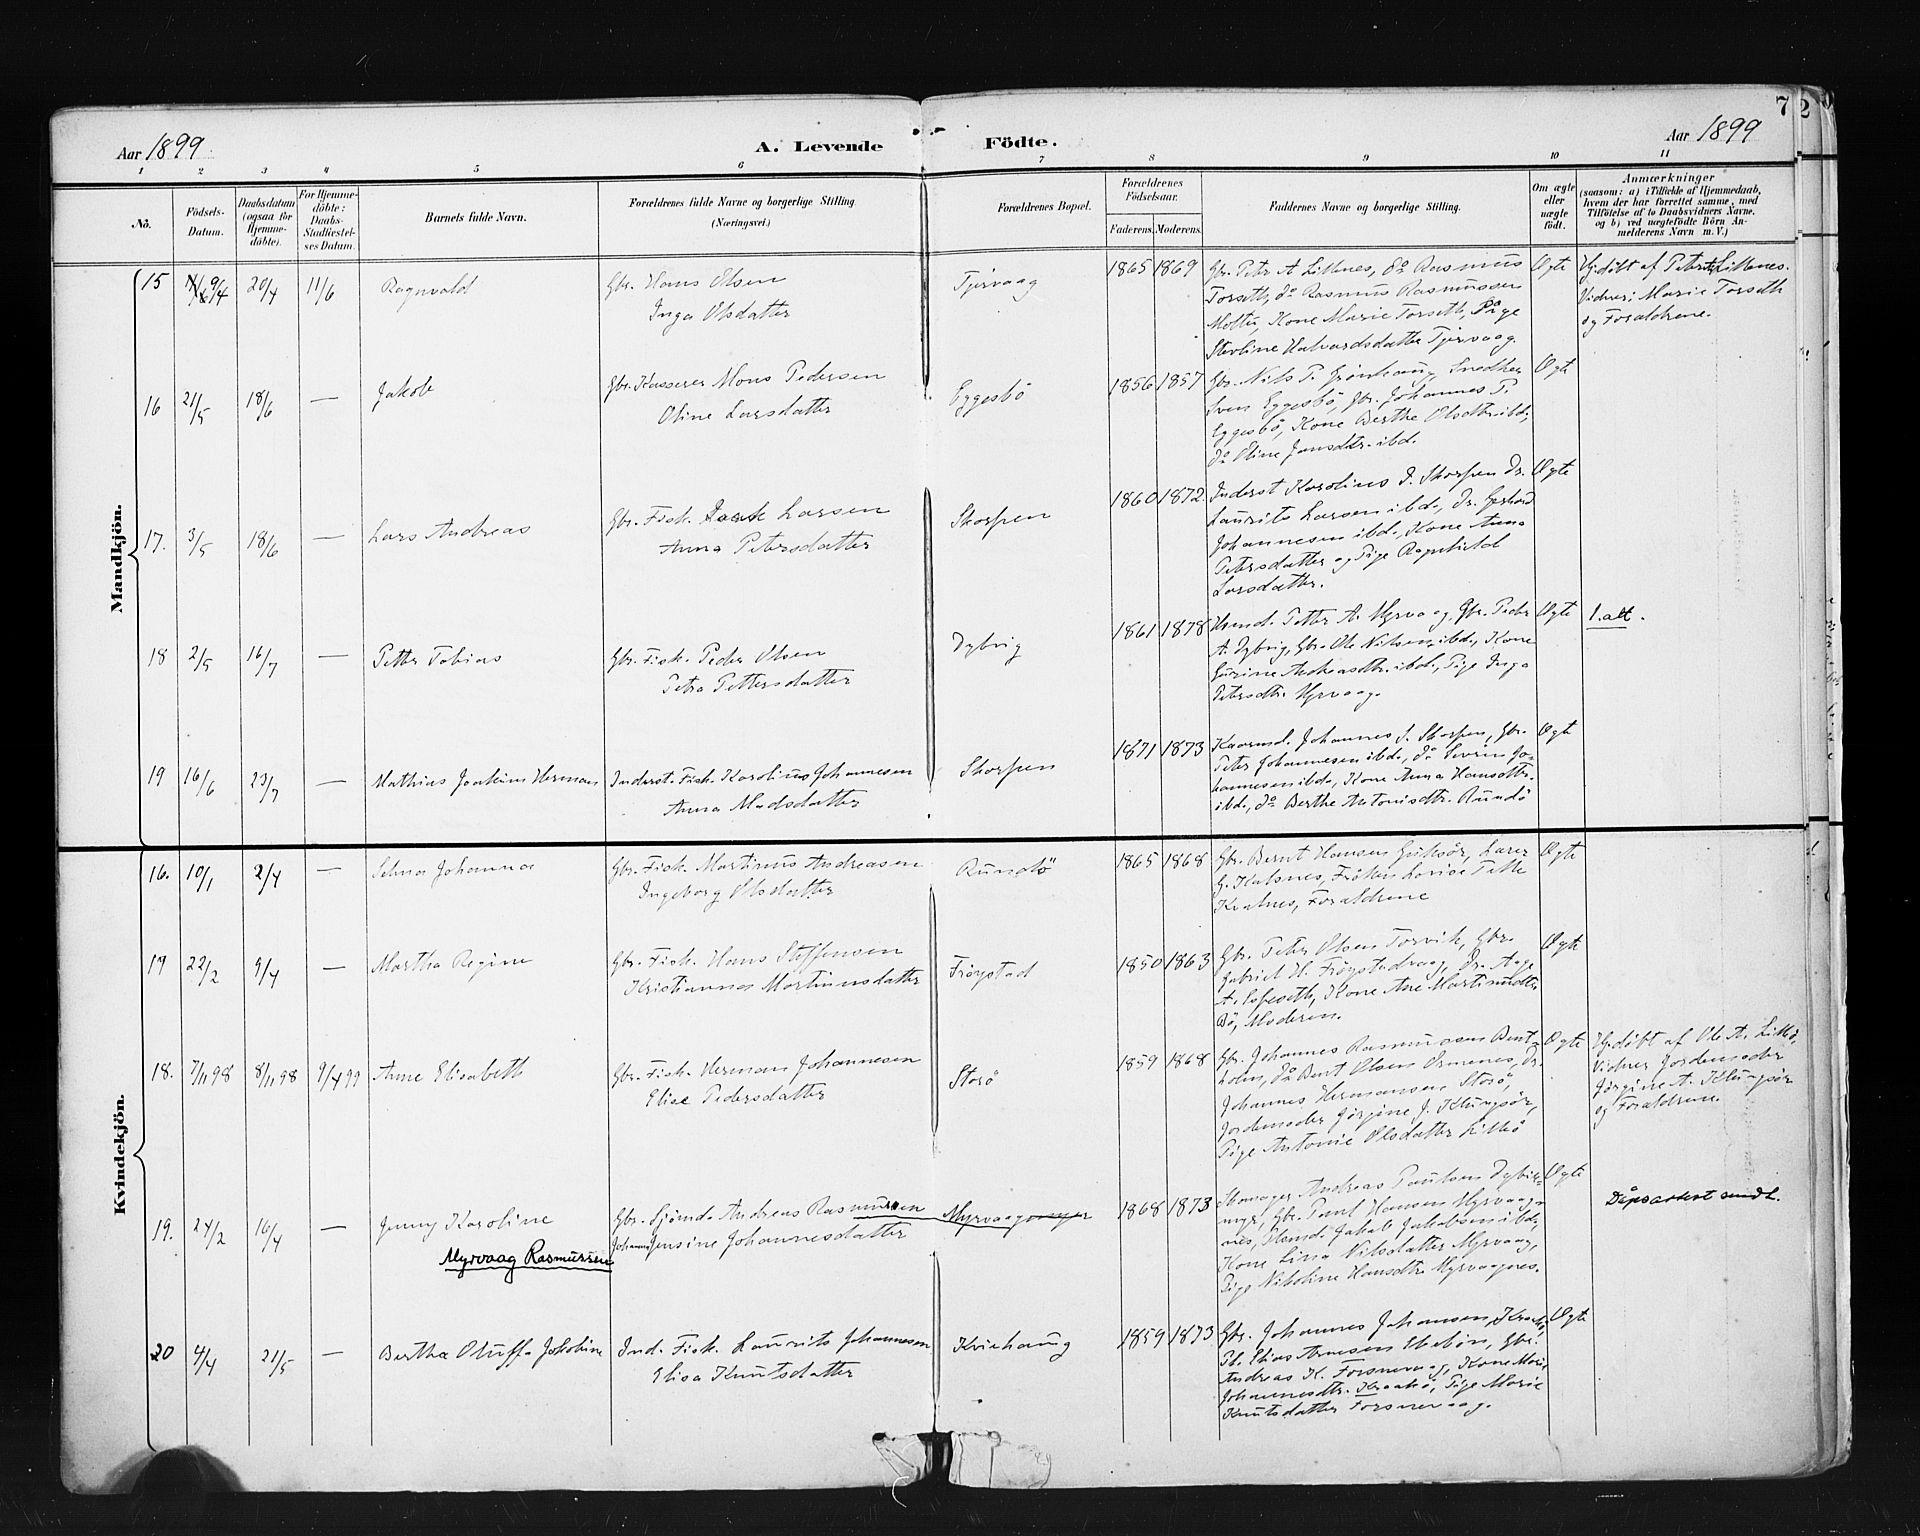 7 2
Aar 1899 A. Levende Födte. Aar 1899
1 2 3 4 5 6 7 8 9 10 11
No.
Födsels-
Datum.
Daabsdatum
(ogsaa for
Hjemme-
döbte).
For Hjemme-
döbte:
Daabs-
Stadfæstel-
ses Datum.
Barnets fulde Navn.
Forældrenes fulde Navne og borgerlige Stilling.
(Næringsvei.)
Forældrenes Bopæl.
Forældrenes
Födselsaar.
Faderens. Moderens.
Faddernes Navne og borgerlige Stilling.
Om ægte
eller
uægte
födt.
Anmærkninger
(saasom: a) i Tilfælde af Hjemmedaab,
hvem der har forrettet samme, med
Tilföielse af to Daabsvidners Navne,
og b) ved uægtefödte Börn An-
melderens Navn m. V.)
Mandkjön.
15 9/4 20/4 11/6 Ragnvald
Gbr. Hans Olsen
Inga Olsdatter
Tjervaag
1865 1869
Gbr. Peter A. Littnes, do Rasmus
Torseth, do Rasmus Rasmussen
Moltu, Kone Marie Torseth, Pige
Halvardsdatter Tjervaag.
Ægte
Hj.døbt af Littnes.
Vidner: Marie Torseth
og Forældrene.
16 21/5 18/6 — Jakob
Gbr. Kasserer Mons Pedersen
Oline Larsdatter
Eggesbö
1856 1857
Gbr. Nils P. Grönhaug, Snedker
Sven Eggesbö, Gbr. Johannes P.
Eggesbö, Kone Berthe Olsdtr. ibd.,
do Oline Jansdtr. ibd.
Ægte
17. 3/5 18/6 — Lars Andreas
Gbr. Fisk. Isak Larsen
Anna Petersdatter
Skorpen
1860 1872
Inderst Karolius J. Skorpen Dr.
Laurits Larsen ibd., Dr. Gerhard
Johannesen ibd., Kone Anna
Petersdatter og Pige Ragnhild
Larsdatter.
Ægte
18 2/5 16/7 — Petter Tobias
Gbr. Fisk. Peder Olsen
Petra Pettersdatter
Dybvig
1861 1878
Husmd. Petter A. Myrvaag, Gbr. Peder
A. Dybvig, Gbr. Ole Nilsen ibd., Kone
Gurine Andreasdtr. ibd., Pige Inga
Petersdtr. Myrvaag.
Ægte
1. att.
19 16/6 23/7 — Mathias Joakim Herman
Inderst Fisk. Karolius Johannesen
Anna Madsdatter
Skorpen
1871 1873
Kaarmd. Johannes J. Skorpen, Gbr.
Peter Johannesen ibd., do Severin Jo-
hannesen ibd., Kone Anna Hansdtr.
ibd., do Berthe Antonisdtr. Rundö
Ægt
Kvindekjön.
16. 10/1 2/4 — Selma Johanna
Gbr. Fisk. Martinus Andreasen
Ingeborg Olsdatter
Rundö
1865 1868
Gbr. Bernt Hansen Lærer
G. Kalsnes, Fröken Lovise
Kvalnes, Forældrene
Ægte
19 22/2 9/4 — Martha Regine
Gbr. Fisk. Hans Steffensen
Kristianna Martinusdatter
Fröystad
1850 1863
Gbr. Peter Olsen Torvik, Gbr.
Gabriel H. Fröystadvaag, Dr. Aage
A. Espeseth, Kone Ane Martinusdtr.
Bö, Moderen.
Ægte
18. 7/11 98 8/11 98 9/4 99 Anne Elisabeth
Gbr. Fisk. Herman Johannesen
Elise Pedersdatter
Storö
1859 1868
Gbr. Johannes Rasmussen Bent-
holm, do Bent Olsen Ormenes, Dr.
Johannes Hermansen Storö,
Jordemoder Jörgine J. Klungsör,
Pige Antonie Olsdatter Littö
Ægte
Hj.døbt af Ole A. Littö,
Vidner Jordemoder
Jörgine A. Klungsör
og Forældrene.
19. 24/2 16/4 — Jenny Karoline
Myrvaag Rasmussen
Gbr. Sjömd. Andreas Rasmussen
Johanna Jensine Johannesdatter
Myrvaag
1868 1873
Skomager Andreas Paulsen Dybvik-
myr, Gbr. Paul Hansen Myrvaag-
nes, Husmd. Jakob Jakobsen ibd.,
Kone Lina Nilsdatter Myrvaag,
Pige Nikoline Hansdtr. Myrvaagnes.
Ægte
Dåpsattest sendt.
20 4/4 21/5 — Bertha Oluffa Jakobine
Ind. Fisk. Laurits Johannesen
Elisa Knutsdatter
Kviehaug
1859 1873
Gbr. Johannes Johansen,
Elias Arnesen Gbr.
Andreas K. Forsnevaag, Kone Marie
Johannesdtr. Pige Marie
Knutsdatter Forsnevaag.
Ægte